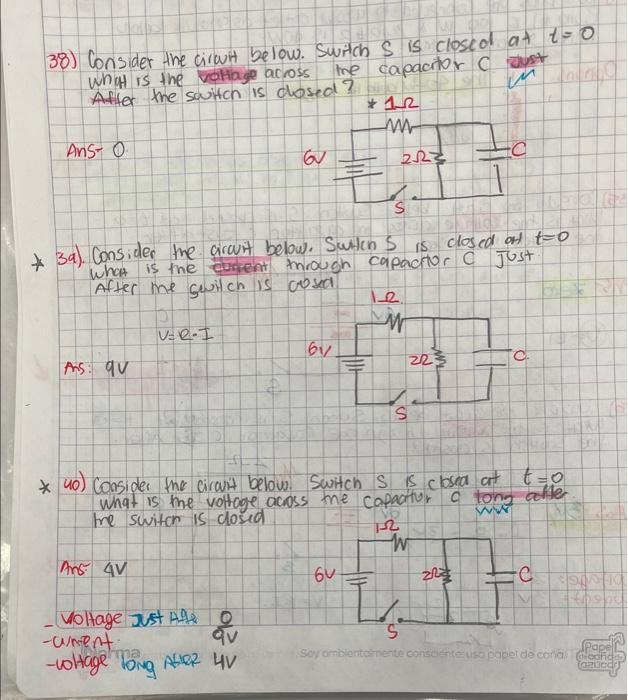 38) Consider the circuit below. Switch S is closed at t=0
what is the voltage across the capacitor C Just
After the switch is closed?
* 1Ω
Ans- 0.
6V
2Ω
C
S
* 39) Consider the circuit below. Switch S is closed at t=0
what is the current through capacitor C Just
After the switch is closed
1Ω
V=R·I
6V
2Ω
C
Ans: 9V
S
* 40) Consider the circuit below. Switch S is closed at t=0
what is the voltage across the capacitor C long after
the switch is closed
1Ω
Ans: 4V
6V
2Ω
C
- Voltage Just After 0
S
- current 9V
- voltage long After 4V
Norma
Soy ambientalmente consciente: uso papel de caña.
Papel de caña de azúcar